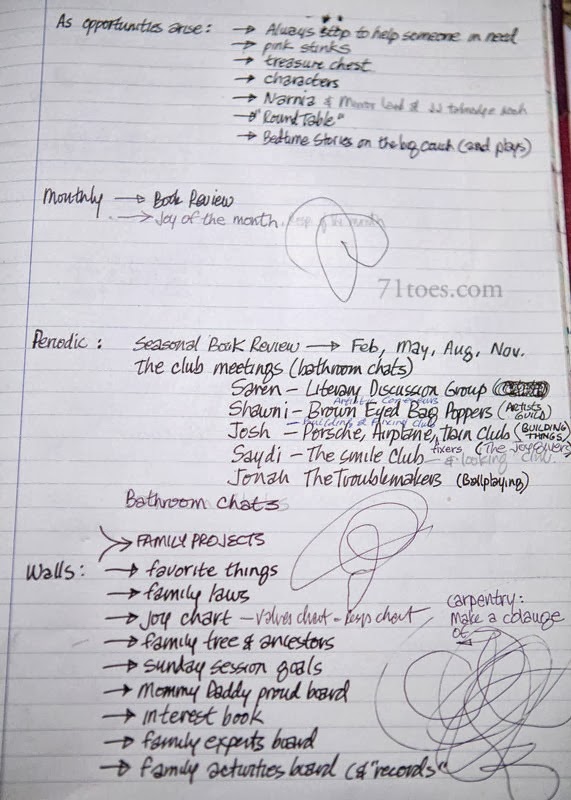 As opportunities arise: → Always stop to help someone in need
→ pink stinks
→ treasure chest
→ characters
→ Narnia & Mirror Land at JJ talmadge nook
→ "Round Table"
→ Bedtime Stories on the big couch (and plays)
Monthly → Book Review
→ Joy of the month, Resp of the month
71toes.com
Periodic: Seasonal Book Review → Feb, May, Aug, Nov.
The club meetings (bathroom chats)
Saren - Literary Discussion Group
Artistic
Shawni - Brown Eyed Bag Poppers (ARTISTS GUILD)
Building & Fixing Club
Josh - Porsche, Airplane, Train Club (BUILDING THINGS)
Saydi - The Smile Club fixers (The Joy
& looking
Jonah The Troublemakers (Ballplaying)
Bathroom chats
→ FAMILY PROJECTS
Walls: → favorite things
→ family laws
→ joy chart - values chart - Resp chart
→ family tree & ancestors
→ Sunday session goals
→ Mommy Daddy proud board
→ interest book
→ family experts board
→ family activities board (& "records"
carpentry:
Make a colauge
of